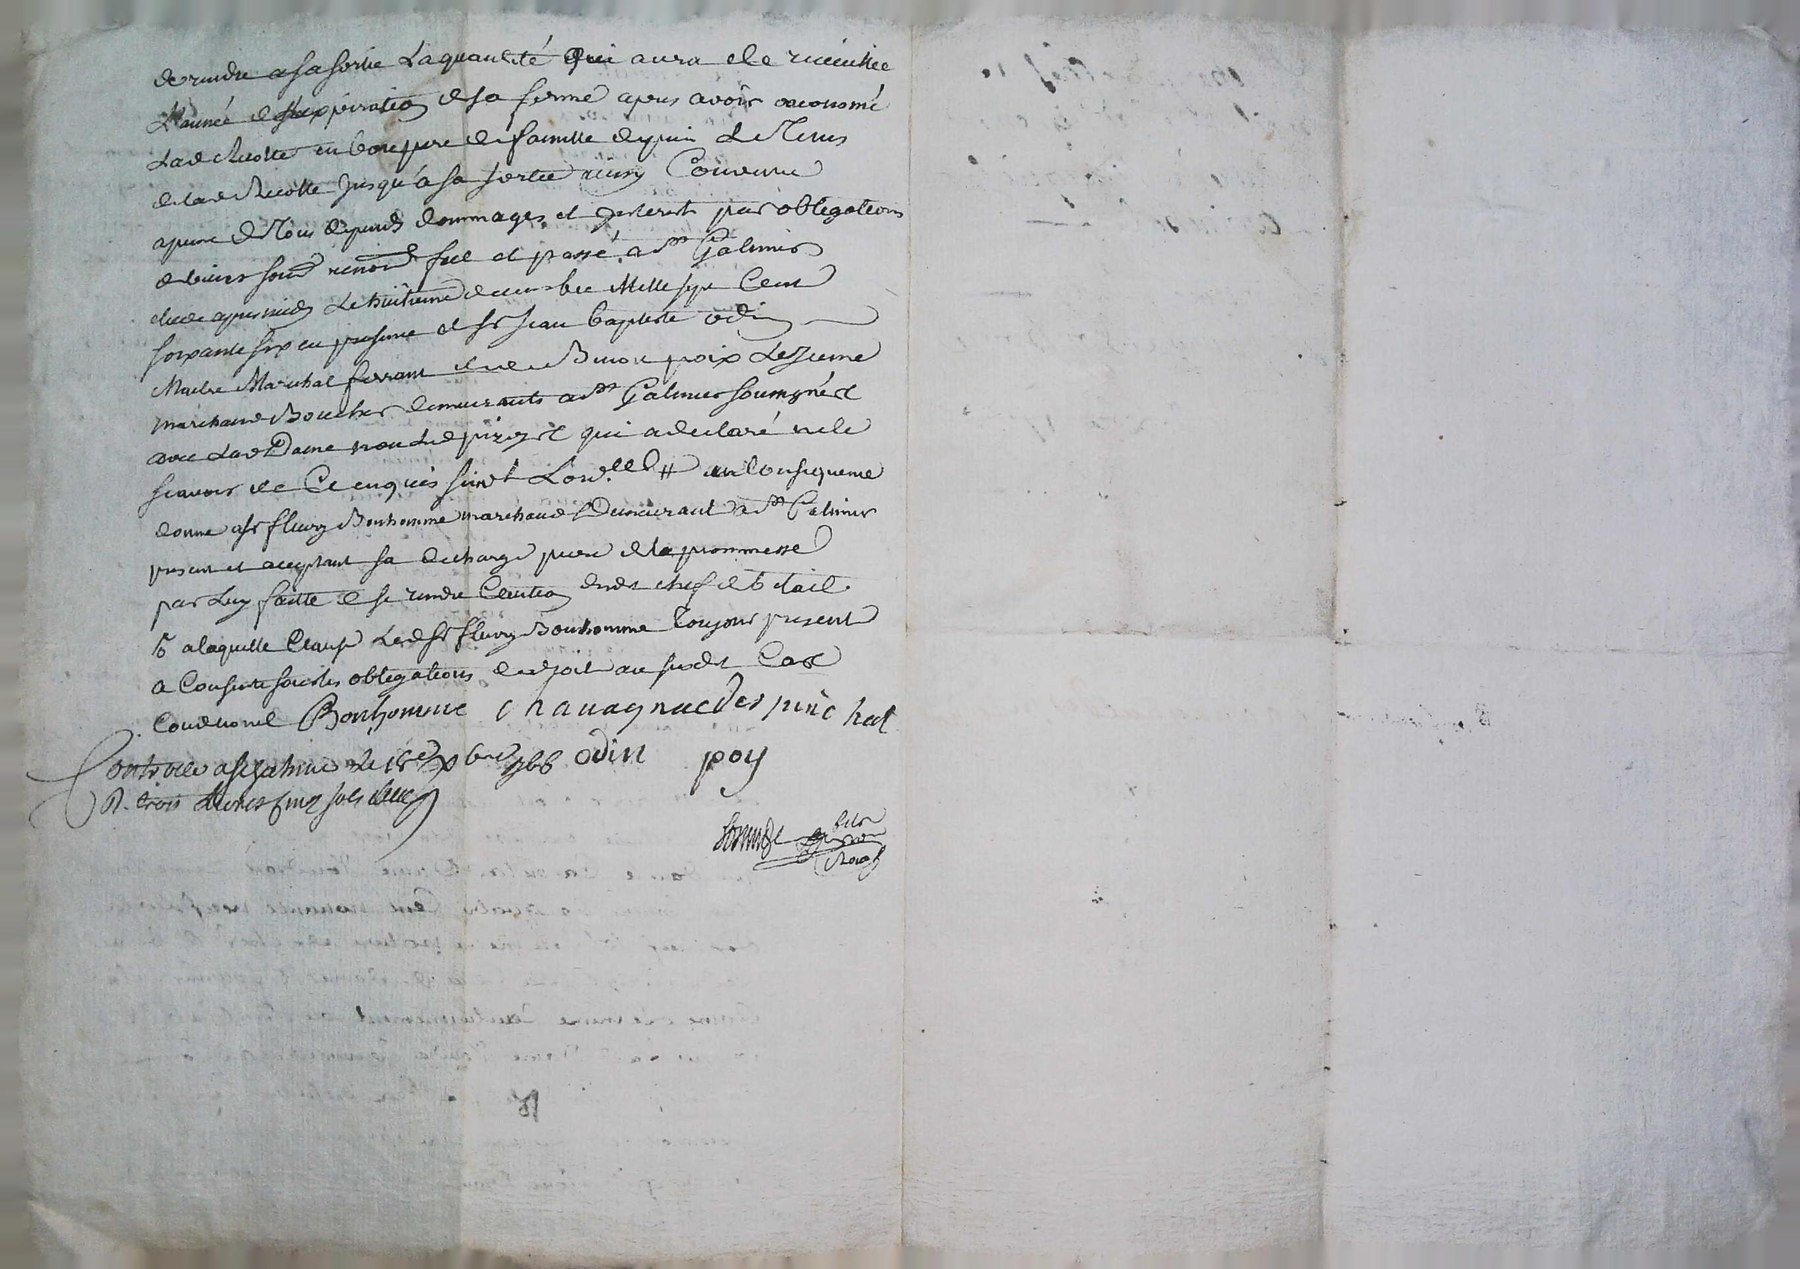 de rendre a sa sortie La quantité qui aura ete recueillie
L'année de l'expiration de sa ferme apres avoir oeconomé
Lad Recolte en bon pere de famille depuis Le Tems
de lad Recolte jusqu'a sa sortie ainsy Convenu
a peine de Tous depends dommages et interest par obligations
de biens soum renon fait et passé a St Galmier
etude apres midy Le huitieme decembre Mille sept Cent
soixante six en presence de Sr Jean baptiste odin
Maitre Marechal ferrant et de Sr poix Le Jeune
marchand Boucher demeurants a St Galmier soussignés et
avec lad Dame non Led qui a declaré ne le
scavoir de Ce enquis
donne a Sr fleury Bonhomme marchand Demeurant a St Galmier
present et acceptant sa decharge pure de la prommesse
par Luy faitte de se rendre Caution dud chef de betail
a laquelle Clause Led Sr fleury Bonhomme Toujour present
a Consenty sous les obligations de droit au susdit Cas
Conditionel Bonhomme Chavagnac des pinchat
Controllé a St galmier Le 18e Xbre 1766 odin poy
R. trois Livres cinq sols